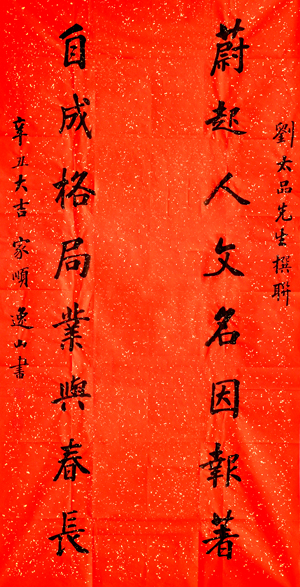 劉太品先生撰聯
蔚起人文名因報著
自成格局業與春長
辛丑大吉 家順 逸山書